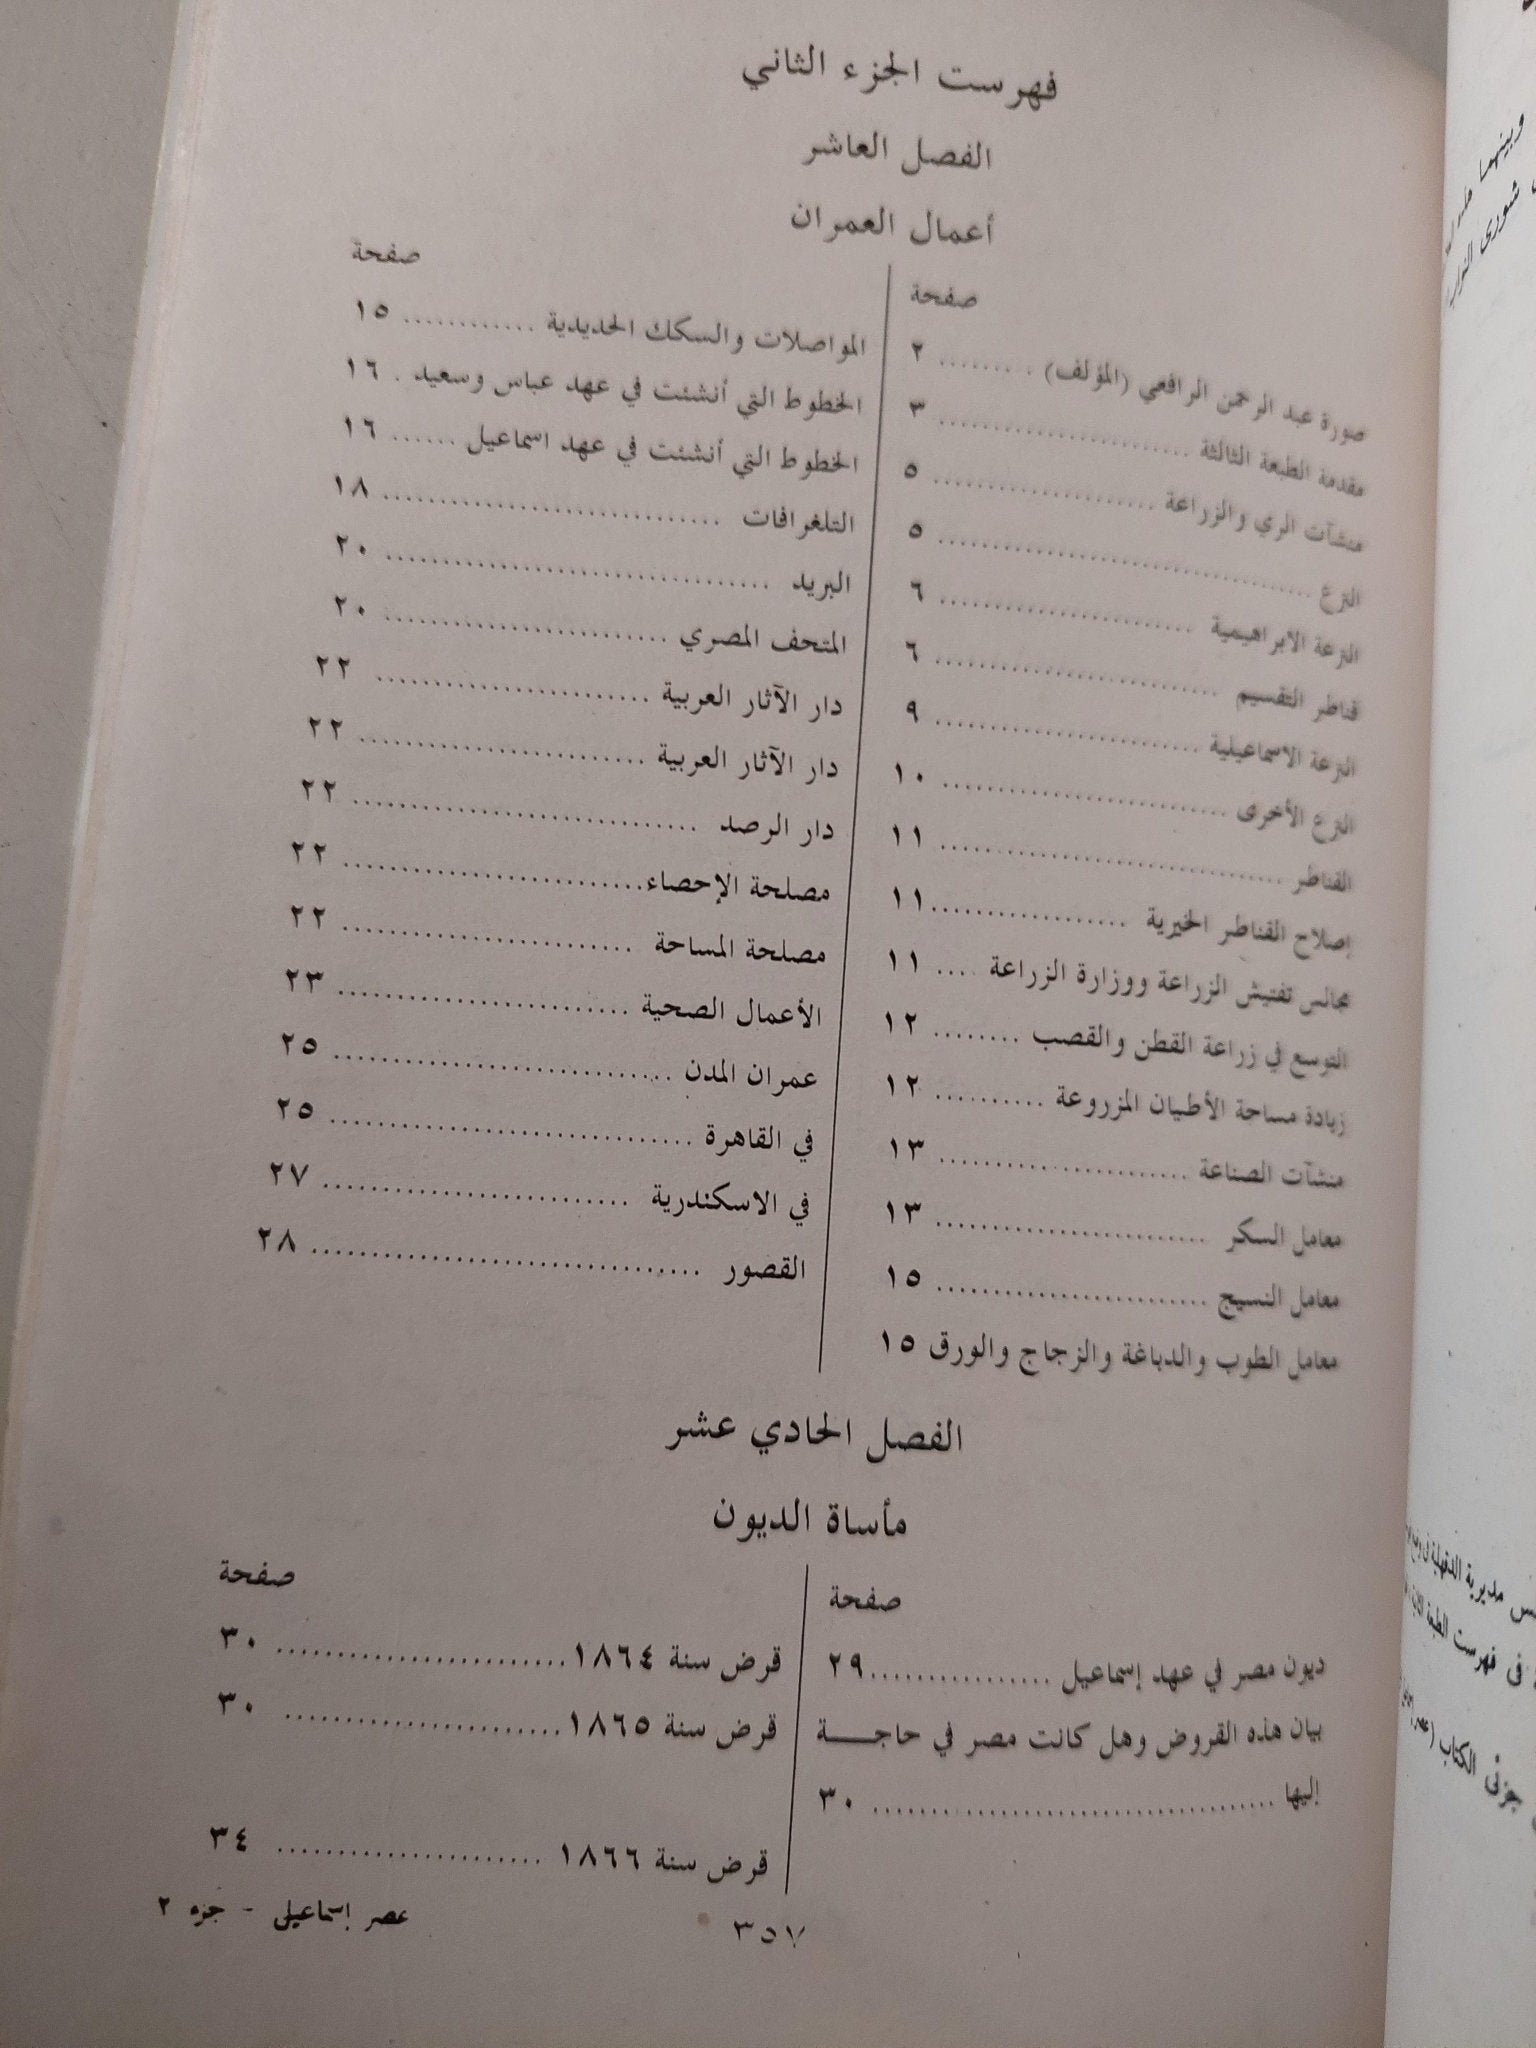 فهرست الجزء الثاني
الفصل العاشر
أعمال العمران
صفحة
صورة عبد الرحمن الرافعي (المؤلف) ......... ٢
مقدمة الطبعة الثالثة ......................... ٣
منشآت الري والزراعة ....................... ٥
الترع ...................................... ٥
الترعة الابراهيمية ......................... ٦
قناطر التقسيم ............................. ٦
الترعة الاسماعيلية ......................... ٩
الترع الأخرى ............................. ١٠
القناطر .................................... ١١
إصلاح القناطر الخيرية ................... ١١
مجالس تفتيش الزراعة ووزارة الزراعة .... ١١
التوسع في زراعة القطن والقصب ........ ١٢
زيادة مساحة الأطيان المزروعة .......... ١٢
منشآت الصناعة ......................... ١٣
معامل السكر ............................ ١٣
معامل النسيج .......................... ١٥
معامل الطوب والدباغة والزجاج والورق ١٥
صفحة
المواصلات والسكك الحديدية ............ ١٥
الخطوط التي أنشئت في عهد عباس وسعيد . ١٦
الخطوط التي أنشئت في عهد اسماعيل ...... ١٦
التلغرافات ................................. ١٨
البريد ..................................... ٢٠
المتحف المصري .......................... ٢٠
دار الآثار العربية ......................... ٢٢
دار الآثار العربية ......................... ٢٢
دار الرصد ................................ ٢٢
مصلحة الإحصاء.......................... ٢٢
مصلحة المساحة ......................... ٢٢
الأعمال الصحية ......................... ٢٣
عمران المدن .............................. ٢٥
في القاهرة ................................ ٢٥
في الاسكندرية .......................... ٢٧
القصور .................................. ٢٨
الفصل الحادي عشر
مأساة الديون
صفحة
ديون مصر في عهد إسماعيل ................ ٢٩
بيان هذه القروض وهل كانت مصر في حاجـــــة
إليها ..................................... ٣٠
صفحة
قرض سنة ١٨٦٤......................... ٣٠
قرض سنة ١٨٦٥....................... ٣٠
قرض سنة ١٨٦٦ ...................... ٣٤
عصر إسماعيلى - جزء ٢
٣٥٧
وبينهما
شورى النواب
مديرية الدقهلية
فى فهرست الطبعة
جزئى الكتاب (عصر